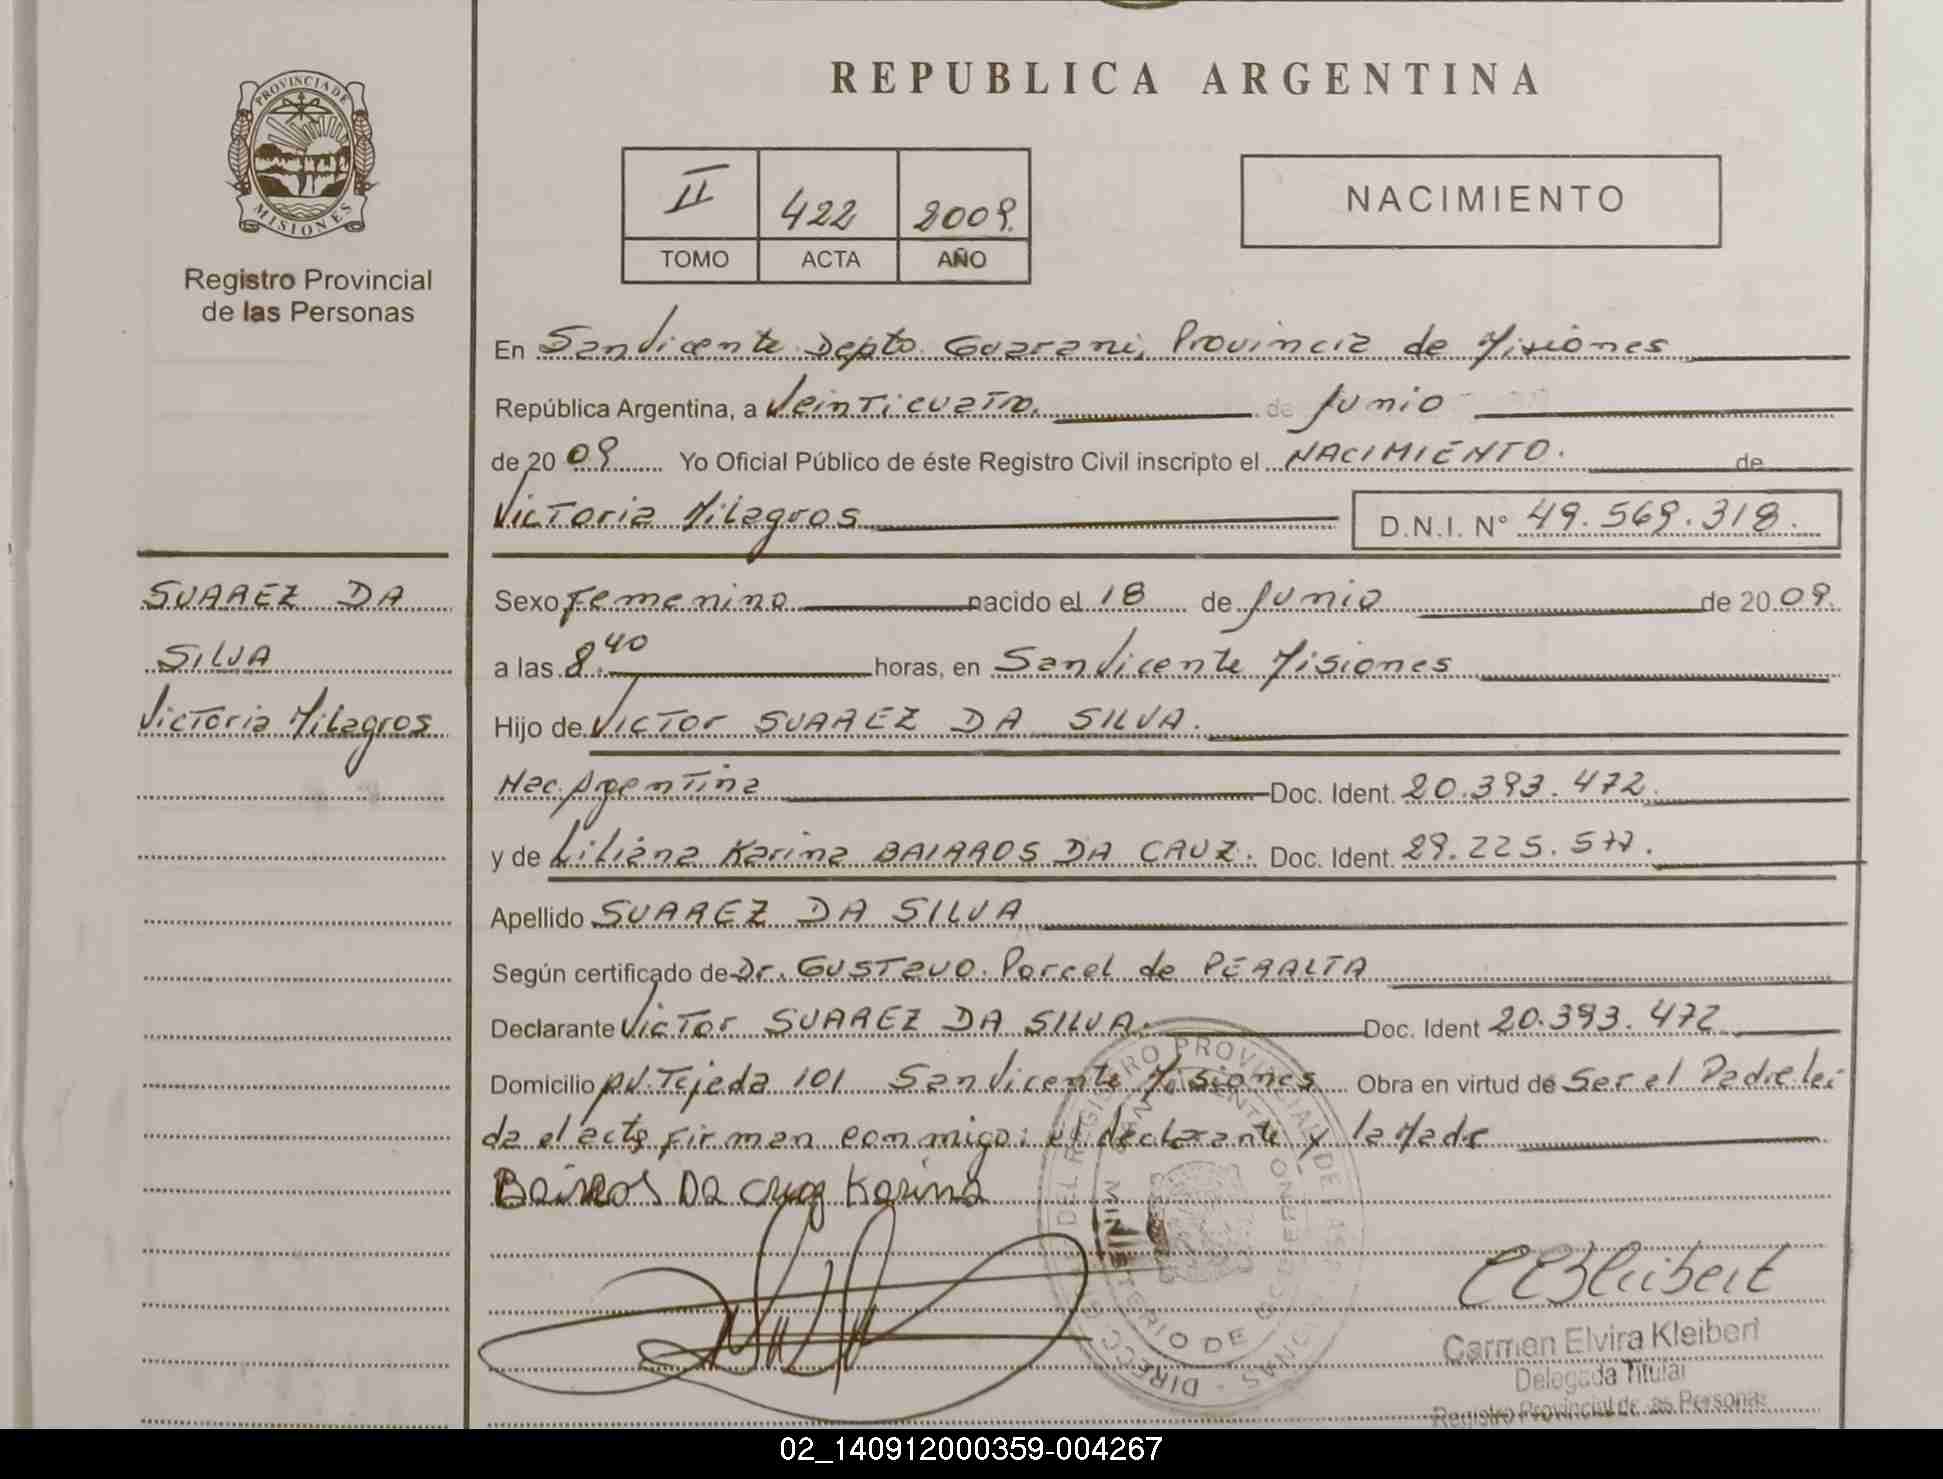 REPUBLICA ARGENTINA
PROVINCIA DE
MISIONES
Registro Provincial
de las Personas
II 422 2009.
TOMO ACTA AÑO
NACIMIENTO
En San Vicente Depto. Guarani, Provincia de Misiones
República Argentina, a Veinticuatro. de Junio
de 2009 Yo Oficial Público de éste Registro Civil inscripto el NACIMIENTO. de
Victoria Milagros D.N.I. N° 49.569.318.
SUAREZ DA
SILVA
Victoria Milagros
Sexo Femenino nacido el 18 de Junio de 2009.
a las 8.40 horas, en San Vicente Misiones
Hijo de Victor SUAREZ DA SILVA.
Nac. Argentina Doc. Ident. 20.393.472.
y de Liliana Karina BAIRROS DA CRUZ. Doc. Ident. 29.225.577.
Apellido SUAREZ DA SILVA
Según certificado de Dr. Gustavo Porcel de PERALTA
Declarante Victor SUAREZ DA SILVA. Doc. Ident 20.393.472
Domicilio Tejeda 101 San Vicente Misiones Obra en virtud de Ser el Padre lei
da el acta firman conmigo: el declarante y la Madre
Bairros Da Cruz Karina
Carmen Elvira Kleibert
Delegada Titular
Registro Provincial de las Personas
02_140912000359-004267